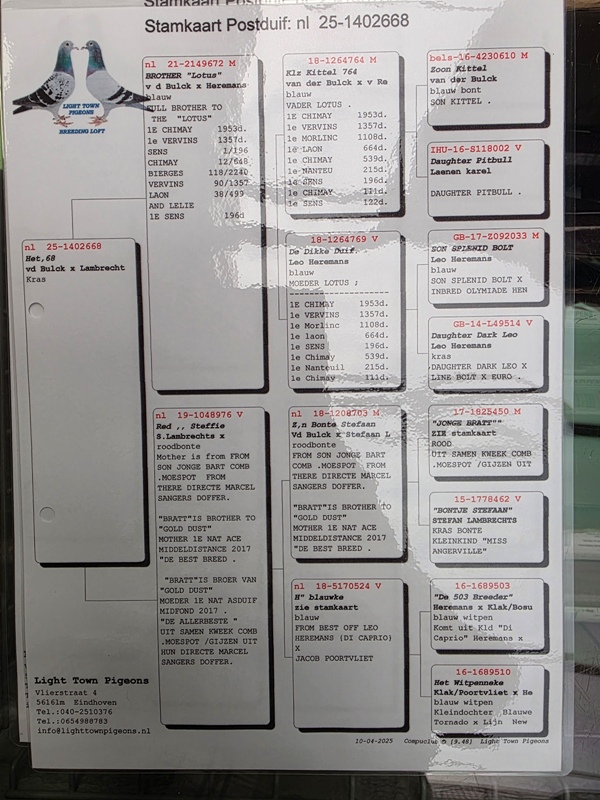 Stamkaart Postduif: nl 25-1402668
LIGHT TOWN
PIGEONS
BREEDING LOFT
nl 25-1402668
Het,68
vd Bulck x Lambrecht
Kras
nl 21-2149672 M
BROTHER "Lotus"
v d Bulck x Heremans
blauw
FULL BROTHER TO
THE "LOTUS"
1E CHIMAY 1953d.
1e VERVINS 1357d.
SENS 1/196
CHIMAY 12/648
BIERGES 118/2240
VERVINS 90/1357
LAON 38/499
AND LELIE
1E SENS 196d
nl 19-1048976 V
Red ,, Steffie
S.Lambrechts x
roodbonte
Mother is from FROM
SON JONGE BART COMB
.MOESPOT FROM
THERE DIRECTE MARCEL
SANGERS DOFFER.
"BRATT"IS BROTHER TO
"GOLD DUST"
MOTHER 1E NAT ACE
MIDDELDISTANCE 2017
"DE BEST BREED .
"BRATT"IS BROER VAN
"GOLD DUST"
MOEDER 1E NAT ASDUIF
MIDFOND 2017 .
"DE ALLERBESTE "
UIT SAMEN KWEEK COMB
.MOESPOT /GIJZEN UIT
HUN DIRECTE MARCEL
SANGERS DOFFER.
18-1264764 M
Klz Kittel 764
van der Bulck x v Re
blauw
VADER LOTUS .
1E CHIMAY 1953d.
1e VERVINS 1357d.
1e MORLINC 1108d.
1e LAON 664d.
1e CHIMAY 539d.
1e NANTEU 215d.
1e SENS 196d.
1e CHIMAY 111d.
1e SENS 122d.
18-1264769 V
De Dikke Duif.
Leo Heremans
blauw
MOEDER LOTUS ;
1E CHIMAY 1953d.
1e VERVINS 1357d.
1e Morlinc 1108d.
1e laon 664d.
1e SENS 196d.
1e Chimay 539d.
1e Nanteuil 215d.
1e Chimay 111d.
nl 18-1208703 M
Z,n Bonte Stefaan
Vd Bulck x Stefaan L
roodbonte
FROM SON JONGE BART
COMB .MOESPOT FROM
THERE DIRECTE MARCEL
SANGERS DOFFER.
"BRATT"IS BROTHER TO
"GOLD DUST"
MOTHER 1E NAT ACE
MIDDELDISTANCE 2017
"DE BEST BREED .
nl 18-5170524 V
H" blauwke
zie stamkaart
blauw
FROM BEST OFF LEO
HEREMANS (DI CAPRIO)
X
JACOB POORTVLIET
bels-16-4230610 M
Zoon Kittel
van der Bulck
blauw bont
SON KITTEL .
IHU-16-S118002 V
Daughter Pitbull
Laenen karel
DAUGHTER PITBULL .
GB-17-Z092033 M
SON SPLENID BOLT
Leo Heremans
blauw
SON SPLENID BOLT X
INBRED OLYMIADE HEN
GB-14-L49514 V
Daughter Dark Leo
Leo Heremans
kras
DAUGHTER DARK LEO X
LINE BOLT X EURO .
17-1825450 M
"JONGE BRATT""
ZIE stamkaart
ROOD
UIT SAMEN KWEEK COMB
.MOESPOT /GIJZEN UIT
15-1778462 V
"BONTJE STEFAAN"
STEFAN LAMBRECHTS
KRAS BONTE
KLEINKIND "MISS
ANGERVILLE"
16-1689503
"De 503 Breeder"
Heremans x Klak/Bosu
blauw witpen
Komt uit Kld "Di
Caprio" Heremans x
16-1689510
Het Witpenneke
Klak/Poortvliet x He
blauw witpen
Kleindochter Blauwe
Tornado x Lijn New
Light Town Pigeons
Vlierstraat 4
5616lm Eindhoven
Tel.:040-2510376
Tel.:0654980783
info@lighttownpigeons.nl
10-04-2025 Compuclub © [9.48] Light Town Pigeons